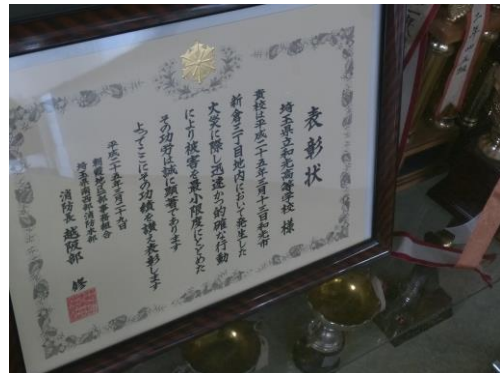 表彰状
埼玉県立和光高等学校 様
貴校は平成二十五年三月十三日和光市
新倉三丁目地内において発生した
火災に際し迅速かつ的確な行動
により被害を最小限度にとどめた
その功労は誠に顕著であります
よってここにその功績を讃え表彰します
平成二十五年三月二十九日
朝霞地区一部事務組合
埼玉県南西部消防本部
消防長 越阪部 修